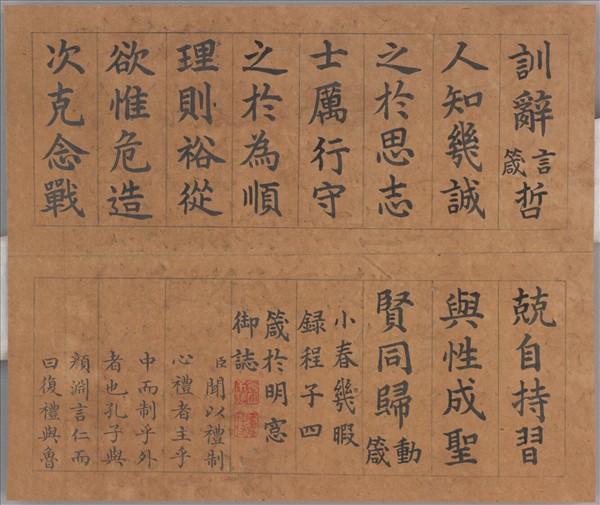 訓辭言箴哲
人知幾誠
之於思志
士厲行守
之於為順
理則裕從
欲惟危造
次克念戰
兢自持習
與性成聖
賢同歸動箴
小春幾暇
録程子四
箴於明窓
御誌
臣聞以禮制
心禮者主乎
中而制乎外
者也孔子與
顏淵言仁而
曰復禮與魯